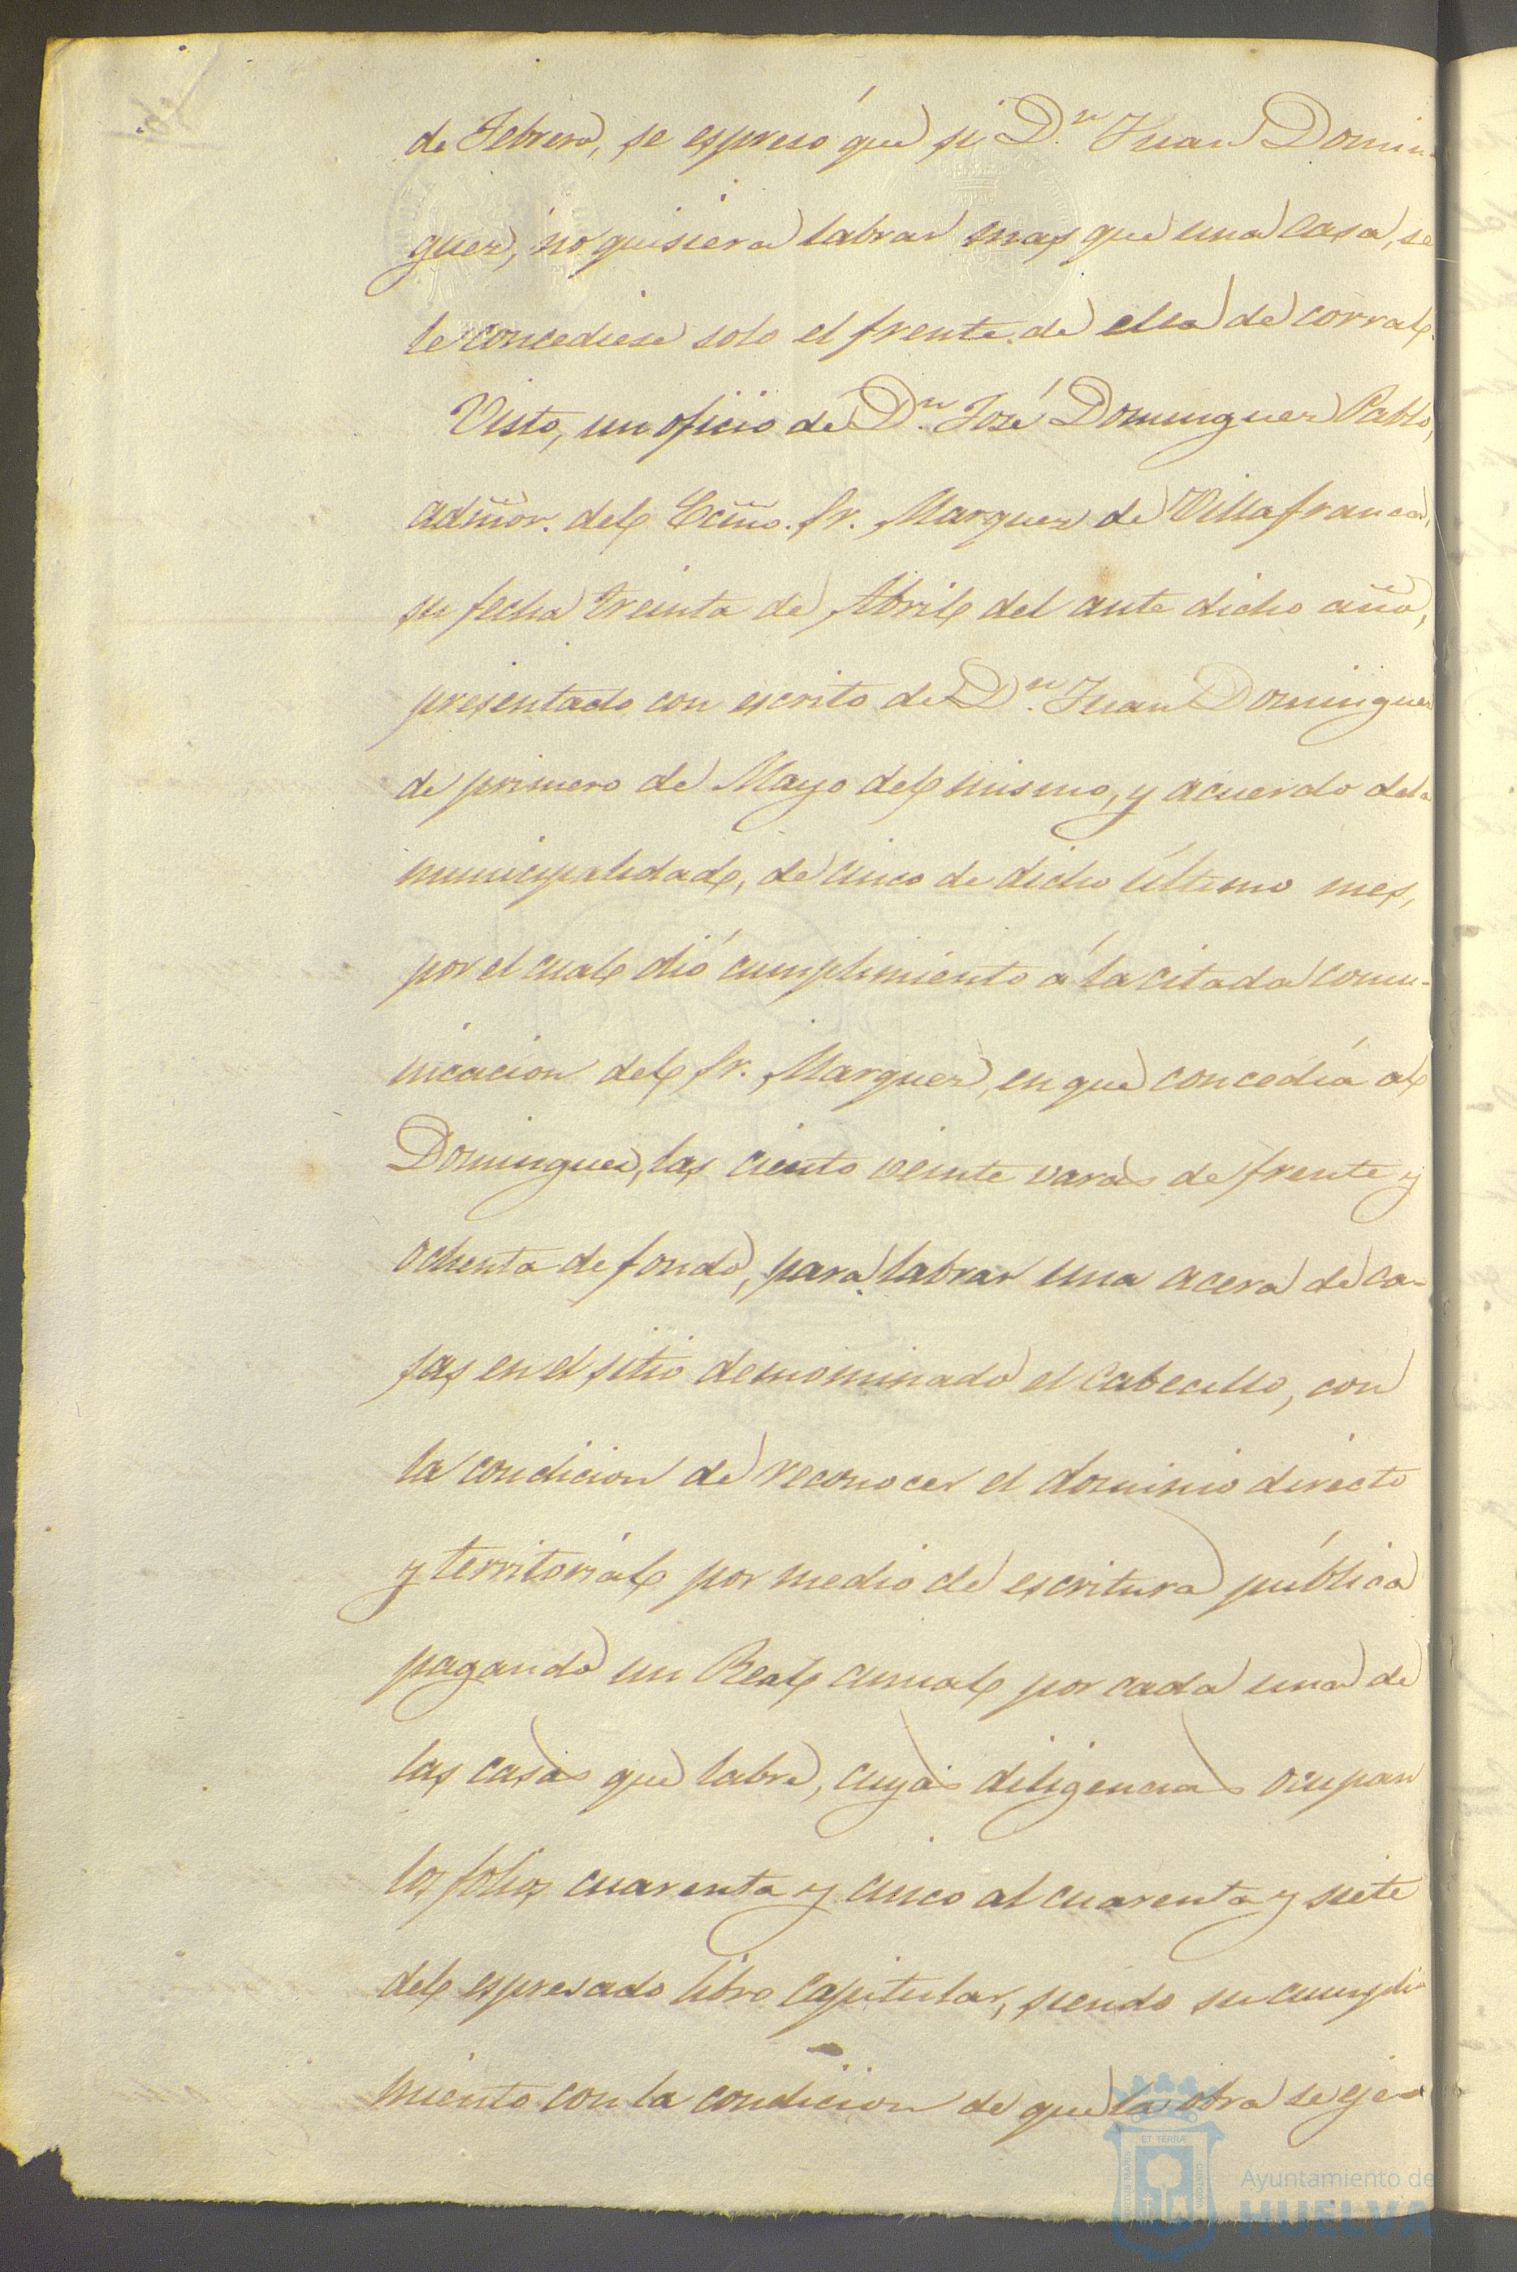 de Febrero, se espresó que si D.n Juan Domin-
guez, no quisiera labrar mas que una casa, se
le concediese solo el frente de ella de corral.
Visto, un oficio de D.n José Dominguez Pablo,
admõr. del Ecmõ. Sr. Marquez de Villafranca,
su fecha treinta de Abril del ante dicho año,
presentado con escrito de D.n Juan Dominguez
de primero de Mayo del mismo, y acuerdo dela
municipalidad, de cinco de dicho último mes,
por el cual dió cumplimiento á la citada comu-
nicacion del Sr. Marquez, en que concedía al
Dominguez, las ciento veinte varas de frente y
ochenta de fondo, para labrar una acera de ca-
sas en el sitio denominado el Cabecillo, con
la condicion de reconocer el dominio directo
y territorial por medio de escritura pública
pagando un Real anual por cada una de
las casas que labre, cuyas diligencias ocupan
los folios cuarenta y cinco al cuarenta y siete
del espresado libro Capitular, siendo su cumpli
miento con la condicion de que la obra se eje-
ET TERRA
Ayuntamiento de
HUELVA